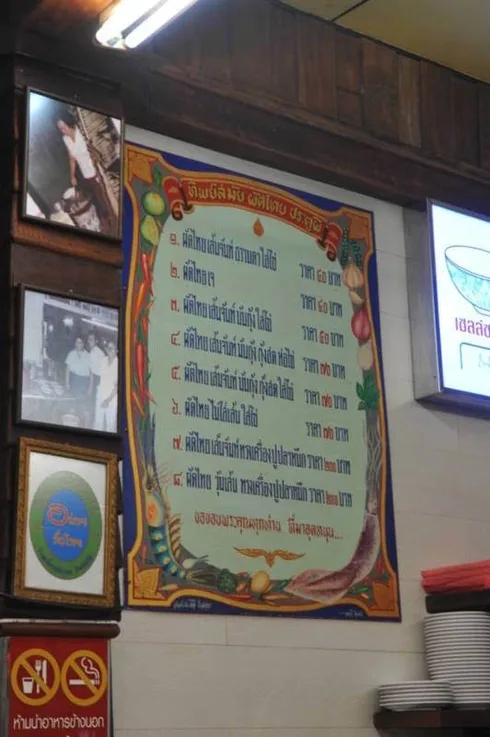 ทิพย์สมัย ผัดไทย ประตูผี
๑. ผัดไทยเส้นจันท์ ธรรมดา ใส่ไข่ ราคา ๔๐ บาท
๒. ผัดไทยเจ ราคา ๔๐ บาท
๓. ผัดไทยเส้นจันท์ มันกุ้ง ใส่ไข่ ราคา ๕๐ บาท
๔. ผัดไทยเส้นจันท์ มันกุ้ง กุ้งสด ห่อไข่ ราคา ๗๐ บาท
๕. ผัดไทยเส้นจันท์ มันกุ้ง กุ้งสด ใส่ไข่ ราคา ๗๐ บาท
๖. ผัดไทยไม่ใส่เส้น ใส่ไข่ ราคา ๗๐ บาท
๗. ผัดไทย เส้นจันท์ทรงเครื่อง ปู ปลาหมึก ราคา ๒๐๐ บาท
๘. ผัดไทย วุ้นเส้น ทรงเครื่อง ปู ปลาหมึก ราคา ๒๐๐ บาท
ขอขอบพระคุณทุกท่าน ที่มาอุดหนุน...
ห้ามนำอาหารข้างนอก